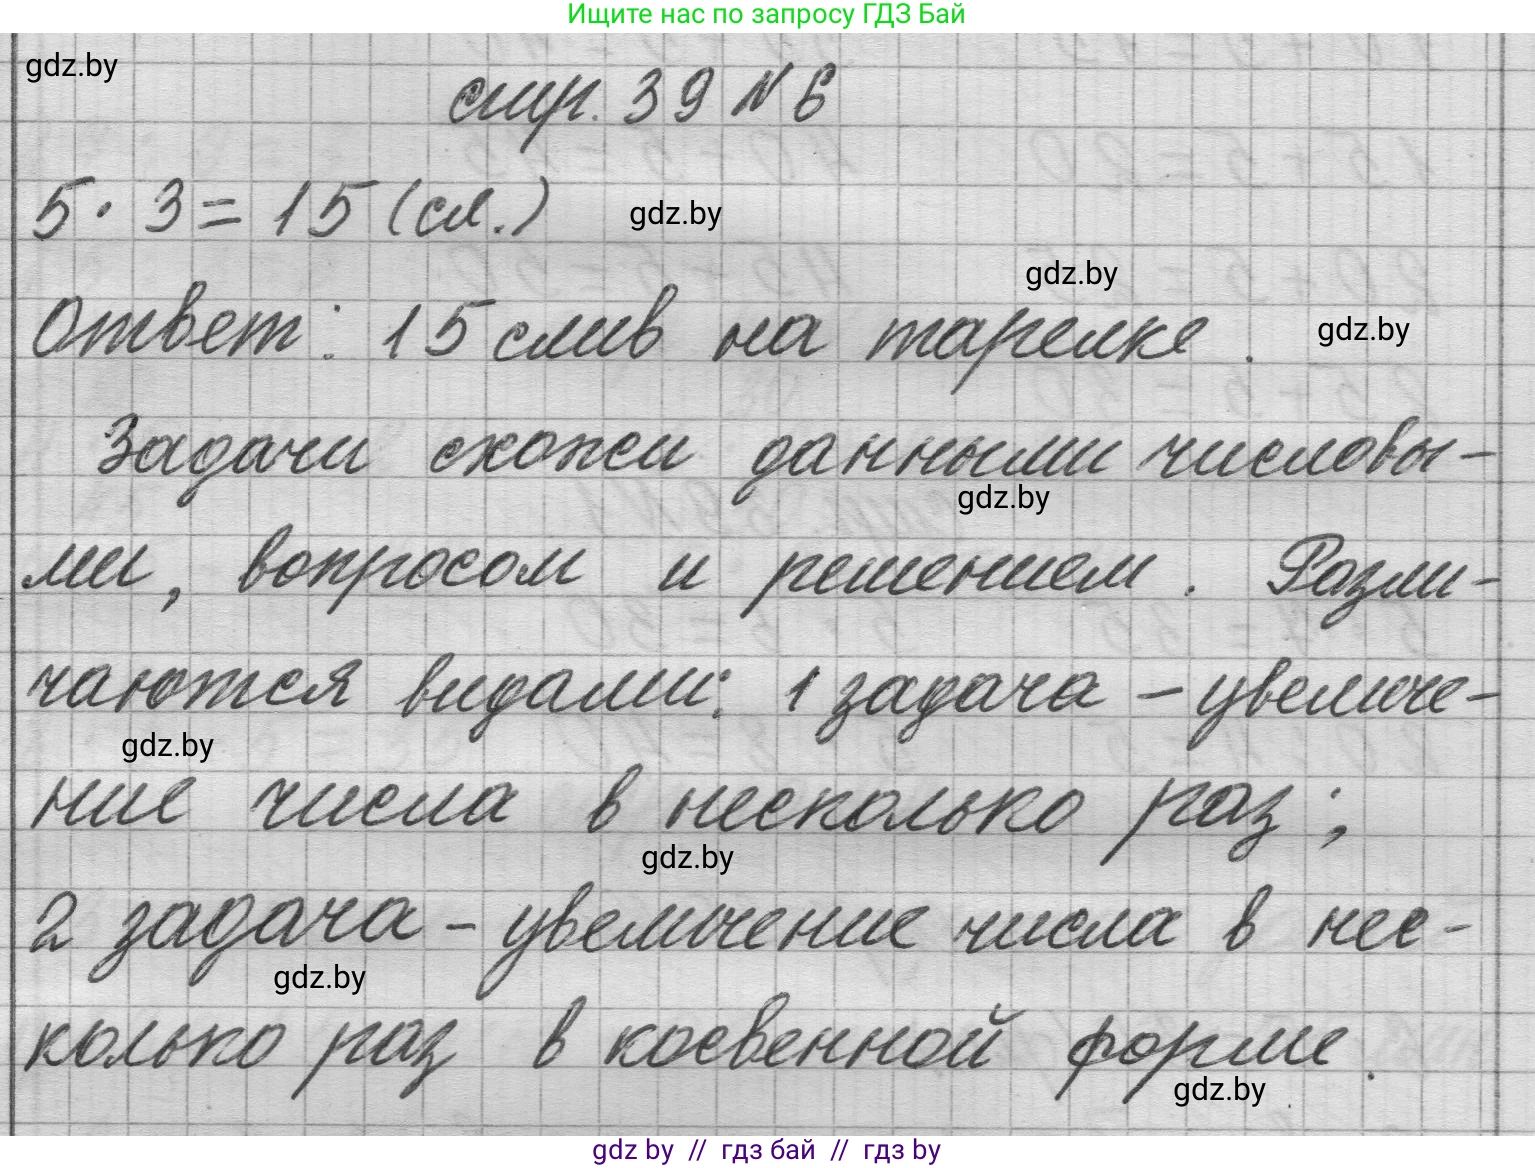 Ищите нас по запросу ГДЗ Бай
gdz.by
стр. 39 N 6
5 · 3 = 15 (сл.)
gdz.by
gdz.by
Ответ: 15 слив на тарелке.
gdz.by
Задачи схожи данными числовы-
gdz.by
ми, вопросом и решением. Разли-
чаются видами: 1 задача - увеличе-
gdz.by
ние числа в несколько раз;
gdz.by
2 задача - увеличение числа в нес-
gdz.by
колько раз в косвенной форме.
gdz.by
gdz by // гдз бай // гдз by